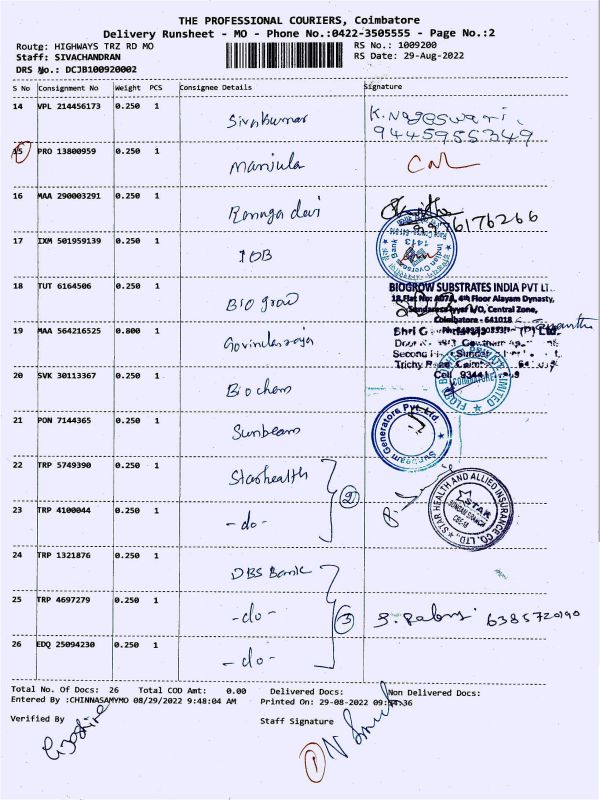 THE PROFESSIONAL COURIERS, Coimbatore
Delivery Runsheet - MO - Phone No.:0422-3505555 - Page No.:2
Route: HIGHWAYS TRZ RD MO
RS No.: 1009200
Staff: SIVACHANDRAN
RS Date: 29-Aug-2022
DRS No.: DCJB100920002
S No Consignment No Weight PCS Consignee Details Signature
14 VPL 214456173 0.250 1 Sivakumar K. Nageswari.
9445955349
15 PRO 13800959 0.250 1 Manjula
16 MAA 290003291 0.250 1 Rennga devi
9976176266
17 IXM 501959139 0.250 1 IOB
Indian Overseas Bank
1413
18 TUT 6164506 0.250 1 Bio grow
BIOGROW SUBSTRATES INDIA PVT LTD
4th Floor Alayam Dynasty,
Central Zone,
Coimbatore - 641018
19 MAA 564216525 0.800 1 Govindaraja
Shri G
Trichy
Cell
20 SVK 30113367 0.250 1 Biochem
PRIVATE LIMITED
COIMBATORE
21 PON 7144365 0.250 1 Sunbeam
Sunbeam Generators Pvt. Ltd.
22 TRP 5749390 0.250 1 Starhealth
2
STAR HEALTH AND ALLIED INSURANCE CO., LTD.
STAR
23 TRP 4100044 0.250 1 -do-
24 TRP 1321876 0.250 1 DBS Bank
25 TRP 4697279 0.250 1 -do- 3 6385720190
26 EDQ 25094230 0.250 1 -do-
Total No. Of Docs: 26 Total COD Amt: 0.00 Delivered Docs: Non Delivered Docs:
Entered By :CHINNASAMYMO 08/29/2022 9:48:04 AM Printed On: 29-08-2022 09:
Verified By Staff Signature
1